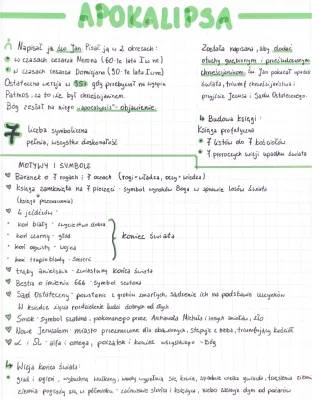 APOKALIPSA
Napisał ją św Jan Pisał ją w 2 okresach:
w czasach cesarza Nerona (60-te lata I w ne)
w czasach cesarza Domicjana (90-te lata I w ne)
Ostateczna wersja w 95r gdy przebywał na wyspie
Patmos, za to że był chrześcijaninem.
Bóg zesłał na niego „apokalypsis"- objawienie.
Została napisana, aby dodać
otuchy gnębionym i prześladowanym
chrześcijanom. św Jan pokazał upadek
świata, triumf chrześcijaństwa i
przyjście Jezusa i Sądu Ostatecznego.
7
liczba symboliczna
pełnia, wszystko doskonałość
↳ Budowa księgi:
Księga profetyczna
7 listów do 7 kościołów
7 proroczych wizji upadku świata
MOTYWY I SYMBOLE
Baranek o 7 rogach i 7 oczach (rogi-władza, oczy-wiedza)
księga zamknięta na 7 pieczęci - symbol wyroków Boga w sprawie losów świata
(księga przeznaczenia)
4 jeźdźców:
koń biały - zwycięstwo dobra
koń czarny - głód
koń ognisty - wojna
koń trupio blady - śmierć
koniec świata
trąby anielskie - zwiastują końca świata
Bestia o imieniu 666 - symbol szatana
Sąd Ostateczny - powstanie z grobów zmarłych, sądzenie ich na podstawie uczynków
W księdze życia rozdzielenie ludzi dobrych od złych
Smok - symbol szatana, pokonanego przez Archanioła Michała i innych aniołów, zło
Nowe Jeruzalem - miasto przeznaczone dla zbawionych, zstępuje z nieba, triumfujący kościół
α i Ω - alfa i omega, początek i koniec wszystkiego - Bóg
↳ Wizja końca świata:
grad i ogień, wybuchną wulkany, wody wypełnią się krwią, spadnie wielka gwiazda, trzęsienia ziemi